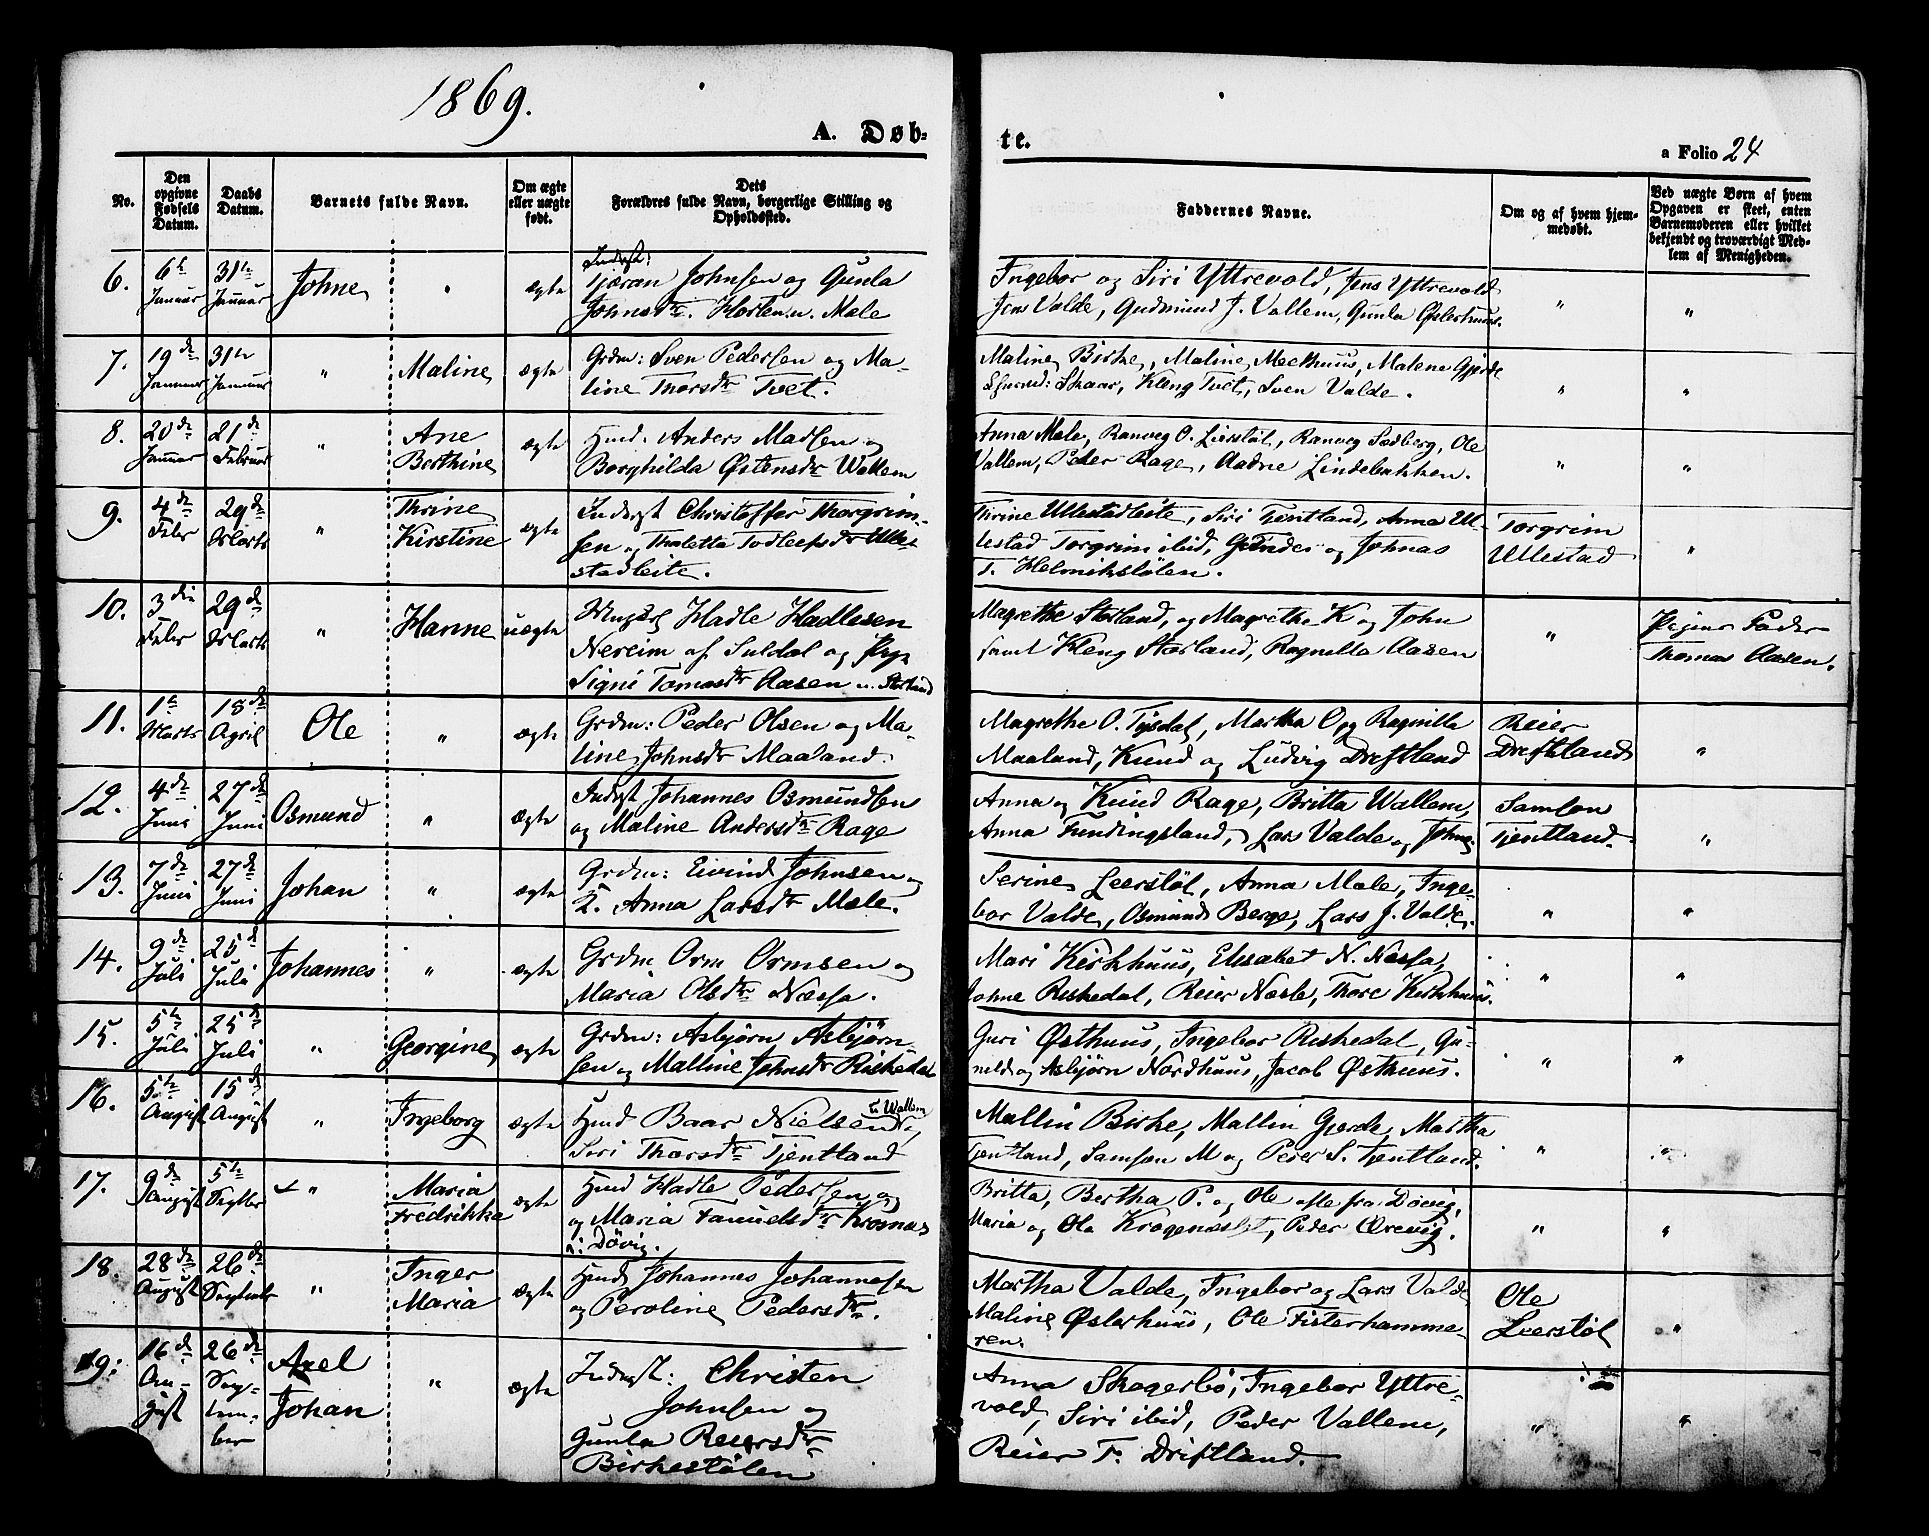 1869.
A. Døb-
te.
a Folio 24
No.
Den opgivne Fødsels Datum.
Daabs Datum.
Barnets fulde Navn.
Om ægte eller uægte født.
Dets Forældres fulde Navn, borgerlige Stilling og Opholdssted.
Faddernes Navne.
Om og af hvem hjemmedøbt.
Ved uægte Børn af hvem Opgaven er skeet, enten Barnemoderen eller hvilket bekjendt og troværdigt Medlem af Menigheden.
6. 6te Januar 31te Januar Johne " ægte
Inderst: Tjæran Johnsen og Gunla
Johnsdtr. Horlen u. Mæle
Ingebor og Siri Yttrevold, Jens Yttrevold
Jens Valde, Gudmund J. Vallem, Gunla Østerhuus. " "
7. 19de Januar 31te Januar " Maline ægte
Grdm: Sven Pedersen og Ma-
line Thorsdtr Tvet.
Maline Birke, Maline Meethuus, Malene Gjerde
Skaar, Kleng Tvet, Sven Valde. " "
8. 20de Januar 21de Februar " Ane Berthine ægte
Hmd: Anders Madsen og
Borghilda Østensdtr Wallem
Anna Mæle, Ranveg O. Leerstøl, Ranveg Sædberg, Ole
Vallem, Peder Rage, Aadne Lindebakken. " "
9. 4de Febr 29de Marts " Thrine Kirstine ægte
Inderst Christoffer Thorgrim-
sen og Thaletta Todleifsdtr Ulle-
stadleite.
Thrine Ullestadleite, Siri Tjentland, Anna Ul-
lestad Torgrim ibid, Gunder og Johnas
T. Helmikstølen.
Torgrim
Ullestad "
10. 3die Febr 29de Marts " Hanne uægte
Ungkarl Hadle Hadlesen
Nereim af Suldal og Pige
Signi Tomasdtr Aasen u. Størland
Magrethe Størland, og Magrethe K og John
samt Kleng Størland, Ragnilla Aasen "
Pigens Fader
Thomas Aasen.
11. 1te Marts 18de April Ole " ægte
Grdm: Peder Olsen og Ma-
line Johnsdtr Maaland.
Magrethe O. Tysdal, Martha O og Ragnilla
Maaland, Knud og Ludvig Driftland
Reier
Driftland "
12. 4de Juni 27de Juni Osmund " ægte
Inderst Johannes Osmundsen
og Maline Andersdtr Rage
Anna og Knud Rage, Britta Wallem,
Anna Fundingsland, Lars Valde og Johne
Samson
Tjentland. "
13. 7de Juni 27de Juni Johan " ægte
Grdm: Eivind Johnsen og
K. Anna Larsdtr Mæle.
Serine Leerstøl, Anna Mæle, Inge-
bor Valde, Osmund Berge, Lars J. Valde. " "
14. 9de Juli 25de Juli Johannes " ægte
Grdm Orm Ormsen og
Maria Olsdtr Næssa.
Mari Kirkhuus, Elisabet N. Nessa,
Johne Riskedal, Reier Næsse, Thore Kirkhuus. " "
15. 5te Juli 25de Juli " Georgine ægte
Grdm: Asbjørn Asbjørn-
sen og Malline Johnsdtr Riskedal
Guri Østhuus, Ingebor Riskedal, Gu-
nild og Asbjørn Nordhuus, Jacob Østhuus. " "
16. 5te August 15de August " Ingeborg ægte
Hmd Baar Nielsen fr Wallem og
Siri Thorsdtr Tjentland
Mallin Birke, Mallin Gjerde, Martha
Tjentland, Samson M og Peder S. Tjentland. " "
17. 9de August 5te Septbr " Maria Fredrikka ægte
Hmd Hadle Pedersen og
og Maria Samuelsdtr Krosnæs
n: Døvig.
Britta, Bertha P. og Ole alle fra Døvig,
Maria og Ola Krogenæs, Peder Ørevig. " "
18. 28de August 26de Septembr " Inger Maria ægte
Hmd Johannes Johannesen
og Peroline Pedersdtr.
Martha Valde, Ingebor og Lars Valde
Maline Østerhuus, Ole Fisterhamme-
ren.
Ole
Leerstøl "
19: 16de August 26de September Axel Johan " ægte
Inderst: Christen
Johnsen og
Gunla Reiersdtr
Birkestølen
Anna Skogerbø, Ingebor Yttre-
vold, Siri ibid, Peder Vallem,
Reier T. Driftland. " "